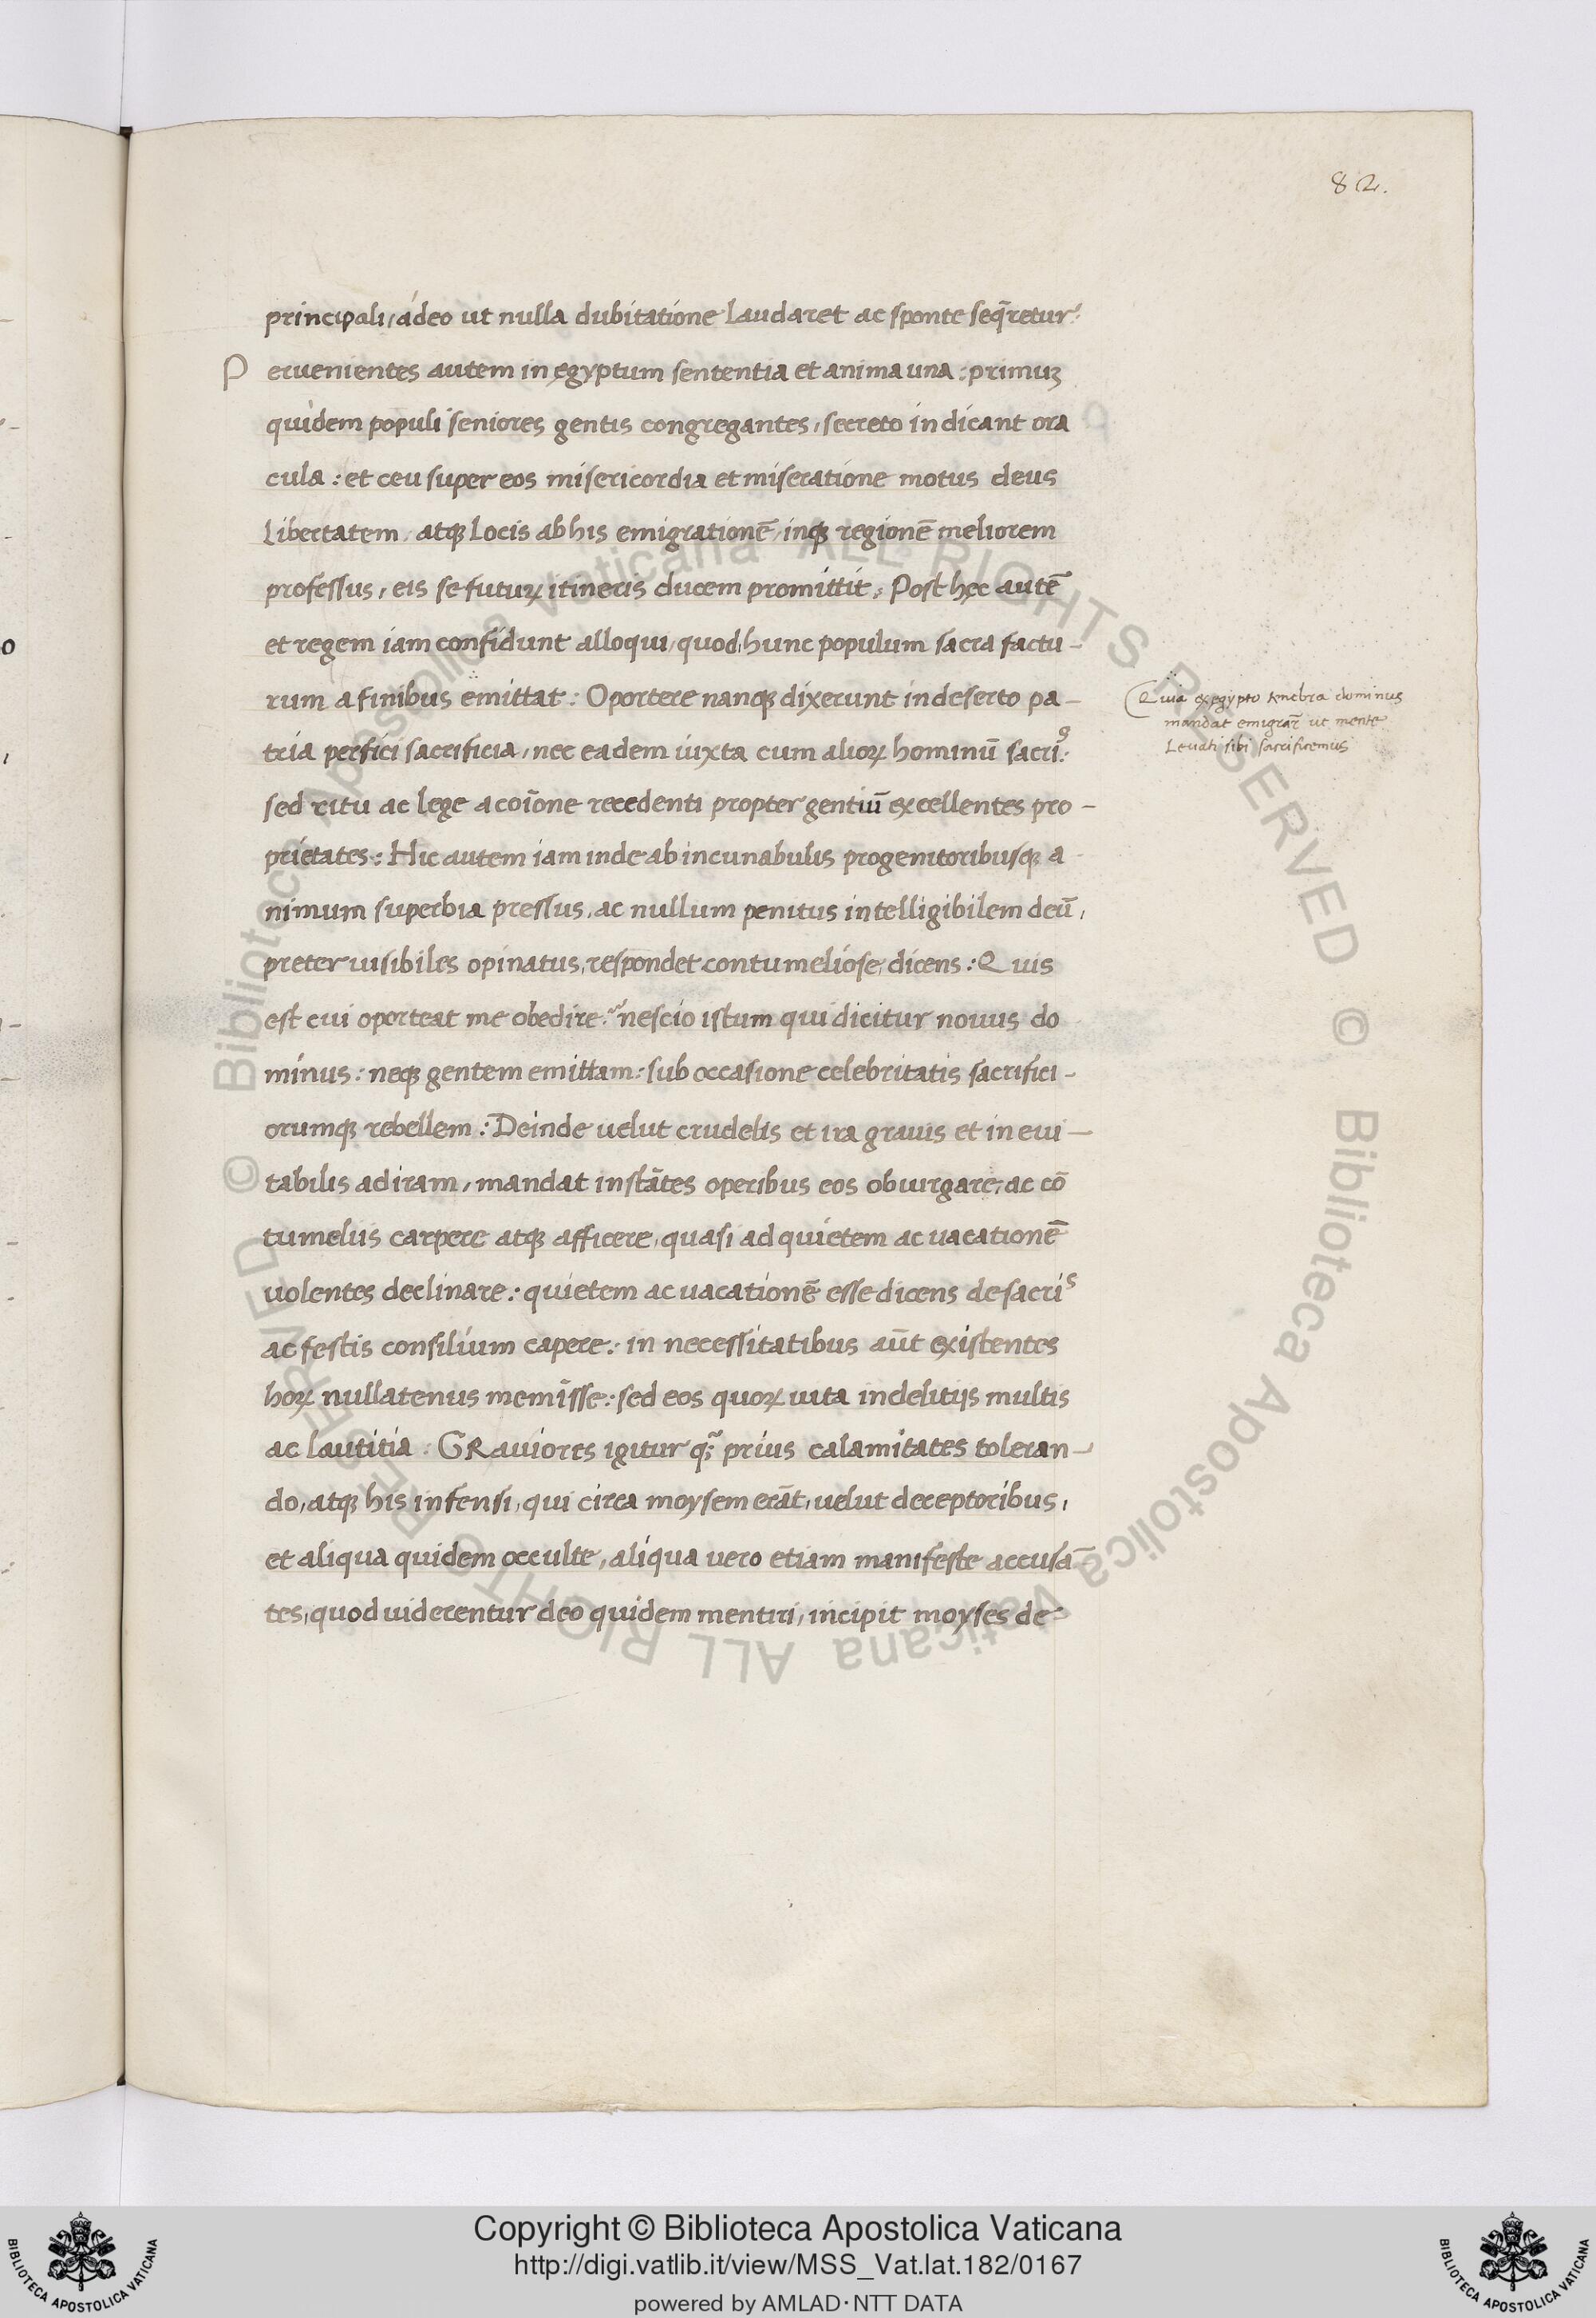 82.
principali, adeo ut nulla dubitatione laudaret ac sponte seq̃retur:
Peruenientes autem in ęgyptum sententia et anima una: primuʒ
quidem populi seniores gentis congregantes, secreto indicant ora
cula: et ceu super eos misericordia et miseratione motus deus
libertatem, atqꝫ locis ab his emigrationē, inqꝫ regionē meliorem
professus, eis se futuꝝ itineris ducem promittit: Post hęc autē
et regem iam confidunt alloqui, quod hunc populum sacra factu-
rum a finibus emittat: Oportere nanqꝫ dixerunt in deserto pa-
tria perfici sacrificia, nec eadem iuxta cum alioꝝ hominū sacris:
sed ritu ac lege a coīone recedenti propter gentiū excellentes pro-
prietates: Hic autem iam inde ab incunabulis progenitoribusqꝫ a
nimum superbia pressus, ac nullum penitus intelligibilem deū,
preter uisibiles opinatus, respondet contumeliose, dicens: Quis
est cui oporteat me obedire? nescio istum qui dicitur nouus do
minus: neqꝫ gentem emittam: sub occasione celebritatis sacrifici-
orumqꝫ rebellem: Deinde uelut crudelis et ira grauis et ineui-
tabilis ad iram, mandat instātes operibus eos obiurgare, ac cō
tumeliis carpere atqꝫ afficere, quasi ad quietem ac uacationē
uolentes declinare: quietem ac uacationē esse dicens de sacris
ac festis consilium capere: in necessitatibus aūt existentes
hoꝝ nullatenus meminisse: sed eos quoꝝ uita in delitijs multis
ac lautitia: GRauiores igitur prius calamitates toleran-
do, atqꝫ his infensi, qui circa moysem erāt, uelut deceptoribus,
et aliqua quidem occulte, aliqua uero etiam manifeste accusā-
tes, quod uiderentur deo quidem mentiri, incipit moyses de
Quia ex egypto tenebra dominus
mandat emigrar̄ ut mente
leuati sibi sacrificemus
© Biblioteca Apostolica Vaticana ALL RIGHTS RESERVED
Copyright © Biblioteca Apostolica Vaticana
http://digi.vatlib.it/view/MSS_Vat.lat.182/0167
powered by AMLAD·NTT DATA
BIBLIOTECA APOSTOLICA VATICANA
BIBLIOTECA APOSTOLICA VATICANA